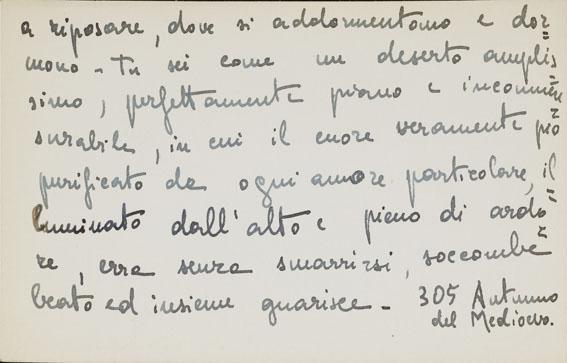 a riposare, dove si addormentano e dor=
mono - Tu sei come un deserto amplis=
simo, perfettamente piano e incommen=
surabile, in cui il cuore veramente pio
purificato da ogni amore particolare, il=
luminato dall'alto e pieno di ardo=
re, erra senza smarrirsi, soccombe
beato ed insieme guarisce - 305 Autunno
del Medioevo.